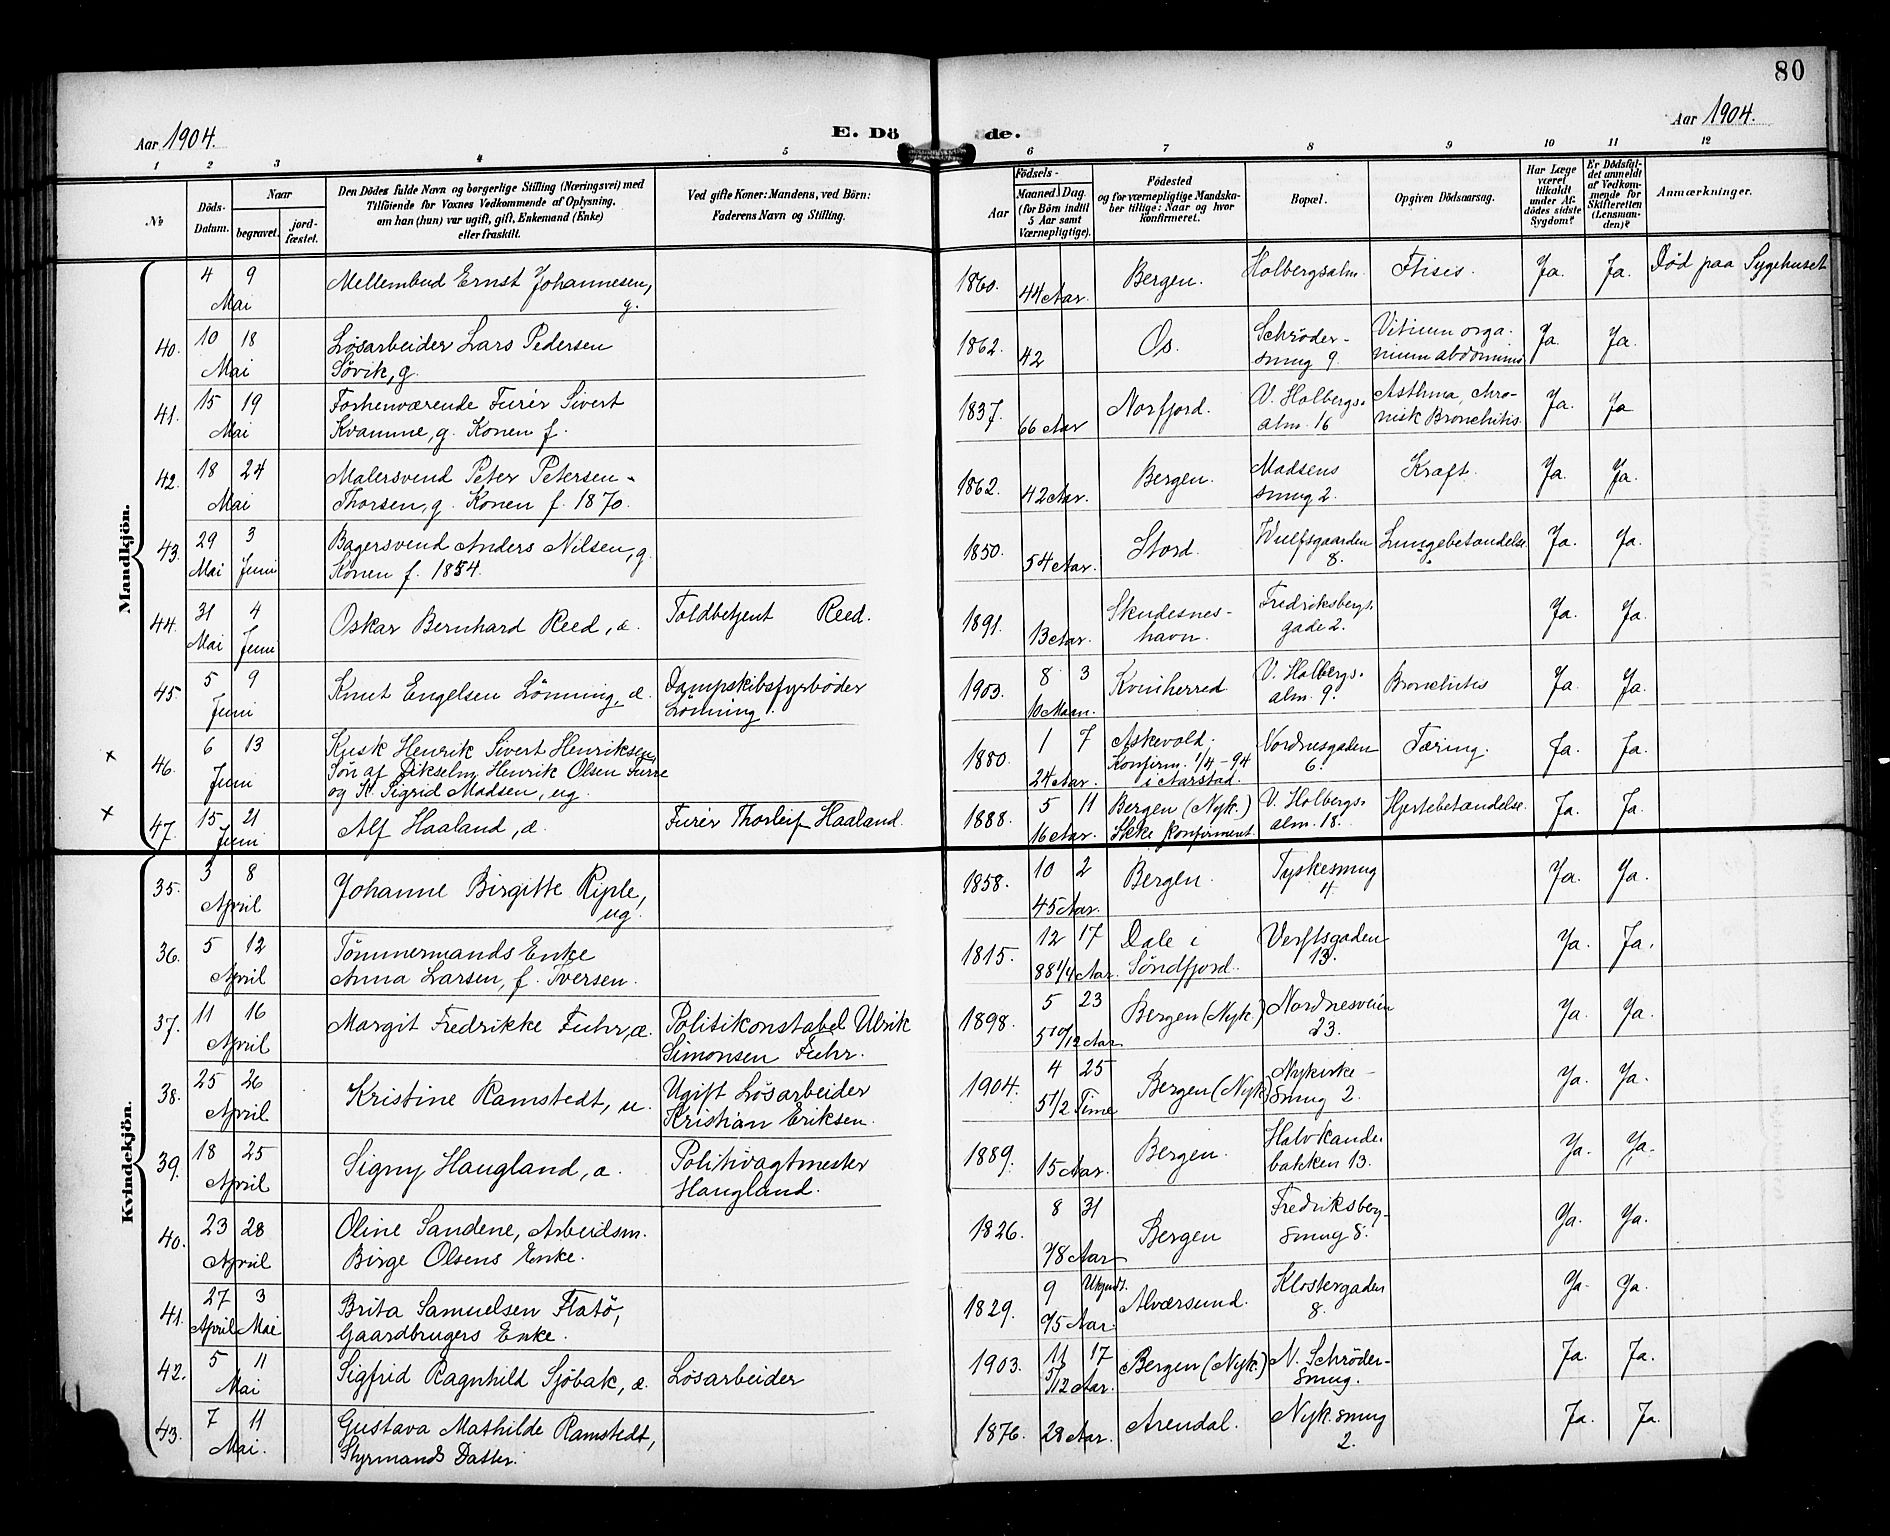 80
Aar 1904.
E. Dö de.
Aar 1904.
1 2 3 4 5 6 7 8 9 10 11 12
No
Döds-Datum.
Naar
begravet.
jordfæstet.
Den Dödes fulde Navn og borgerlige Stilling (Næringsvei) med
Tilföiende for Voxnes Vedkommende af Oplysning,
om han (hun) var ugift, gift, Enkemand (Enke)
eller fraskilt.
Ved gifte Koner: Mandens, ved Börn:
Faderens Navn og Stilling.
Aar
Födsels-
Maaned Dag
(for Börn indtil
5 Aar samt
Værnepligtige).
Födested
og for værnepligtige Mandskaber tillige: Naar og hvor
konfirmeret.
Bopæl.
Opgiven Dödsaarsag.
Har Læge
været
tilkaldt
under Afdödes sidste
Sygdom?
Er Dödsfaldet anmeldt
af Vedkommende for
Skifteretten
(Lensmanden)?
Anmærkninger.
Mandkjön.
4 9 Mai
Mellembud Ernst Johannesen, g.
1860. 44 Aar. Bergen. Holbergsalm. Ftisis. Ja. Ja. Död paa Sygehuset
40. 10 18 Mai
Løsarbeider Lars Pedersen
Søvik, g.
1862. 42 Os. Schrödersmug 9. Vitium organium abdominis Ja. Ja.
41. 15 19 Mai
Forhenværende Furér Sivert
Kvamme, g. Konen f.
1837. 66 Aar Norfjord. V. Holbergsalm. 16 Asthma, chronisk Bronchitis. Ja. Ja
42. 18 24 Mai
Malersvend Peter Petersen-
Thorsen, g. Konen f. 1870.
1862. 42 Aar. Bergen. Madsens smug 2. Kraft. Ja. Ja.
43. 29 Mai 3 Juni
Bagersvend Anders Nilsen, g.
Konen f. 1854.
1850. 54 Aar. Stord. Wulfsgaarden 8. Lungebetændelse Ja. Ja.
44. 31 Mai 4 Juni
Oskar Bernhard Reed, æ. Toldbetjent Reed.
1891. 13 Aar. Skudesneshavn. Fredriksbergsgade 2. Ja. Ja.
45. 5 9 Juni
Knut Engelsen Lönning, æ. Dampskibsfyrböder
Lönning.
1903. 8 3 10 Maan. Kvinherred V. Holbergsalm. 9. Bronchitis Ja. Ja.
x 46. 6 13 Juni
Kusk Henrik Sivert Henriksen,
Søn af Dikselm. Henrik Olsen Furre
og K. Sigrid Madsen, ug.
1880. 1 7 24 Aar. Askevold. Konfirm. 1/4-94 i Aarstad. Nordnesgaden 6. Tæring. Ja. Ja.
x 47. 15 21 Juni
Alf Haaland, æ. Furér Thorleif Haaland.
1888. 5 11 16 Aar. Bergen (Nyk.) Ikke konfirmert. V. Holbergsalm. 18. Hjertebetændelse. Ja. Ja.
Kvindekjön.
35. 3 8 April
Johanne Birgitte Riple, ug.
1858. 10 2 45 Aar. Bergen. Tyskesmug 4. Ja. Ja.
36. 5 12 April
Tömmermands Enke
Anna Larsen, f. Iversen.
1815. 12 17 88 1/4 Aar. Dale i Söndfjord. Verftsgaden 13. Ja. Ja.
37. 11 16 April
Margit Fredrikke Fuhr, æ. Politikonstabel Ulrik
Simonsen Fuhr.
1898. 5 23 5 10/12 Aar Bergen (Nyk.) Nordnesveien 23. Ja. Ja.
38. 25 26 April
Kristine Ramstedt, u. Ugift Lösarbeider
Kristian Eriksen.
1904. 4 25 5 1/2 Time Bergen (Nyk) Nykirkesmug 2. Ja. Ja.
39. 18 25 April
Signy Haugland, a. Politivagtmester
Haugland.
1889. 15 Aar. Bergen. Halvkandebakken 13. Ja. Ja.
40. 23 28 April
Oline Sandene, Arbeidsm.
Birge Olsens Enke.
1826. 8 31 78 Aar Bergen Fredriksbergsmug 8. Ja. Ja.
41. 27 April 3 Mai
Brita Samuelsen Flatö,
Gaardbrugers Enke.
1829. 9 Ukjendt. 75 Aar. Alværsund. Klostergaden 8. Ja. Ja.
42. 5 11 Mai
Sigfrid Ragnhild Sjöbak, æ. Lösarbeider
1903. 11 17 5/12 Aar. Bergen (Nyk.) N. Schrödersmug. Ja. Ja.
43. 7 11 Mai.
Gustava Mathilde Ramstedt,
Styrmands Datter.
1876. 28 Aar. Arendal. Nyk. smug 2. Ja. Ja.